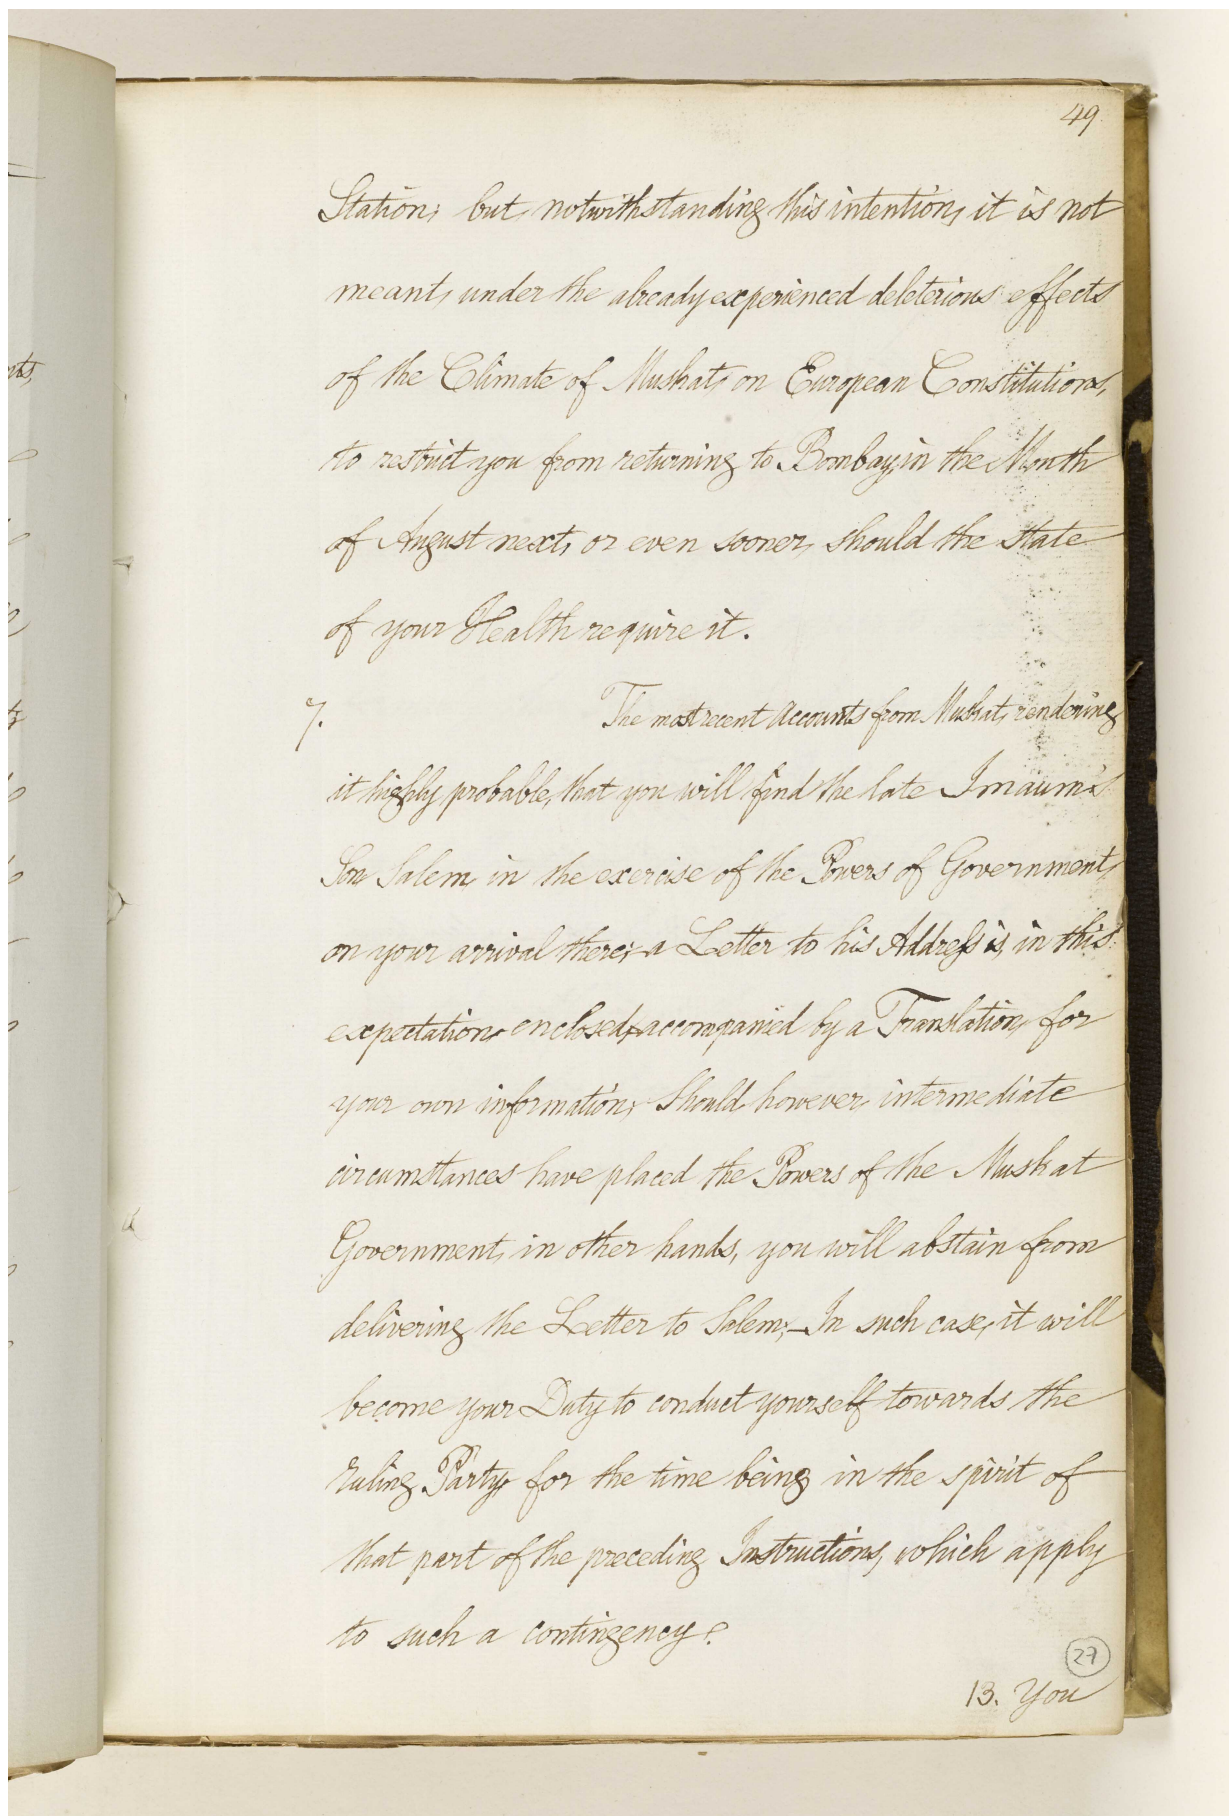 49
Station; but, notwithstanding this intention, it is not
meant, under the already experienced deleterious effects
of the Climate of Muskat, on European Constitutions,
to restrict you from returning to Bombay, in the Month
of August next, or even sooner, should the state
of your Health require it.
7. The most recent Accounts from Muskat, rendering
it highly probable, that you will find the late Imaum's
Son Salem, in the exercise of the Powers of Government,
on your arrival there; a Letter to his Address is, in this
expectation, enclosed, accompanied by a Translation, for
your own information; Should, however, intermediate
circumstances have placed the Powers of the Muskat
Government, in other hands, you will abstain from
delivering the Letter to Salem;—In such case, it will
become your Duty to conduct yourself towards the
ruling Party, for the time being, in the spirit of
that part of the preceding Instructions, which apply
to such a contingency.
27
13. You